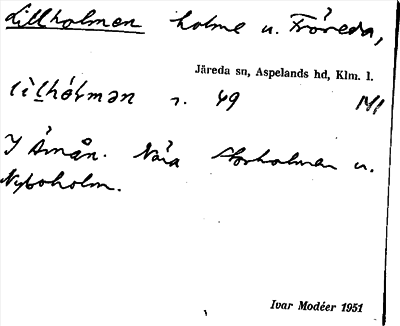 Lillholmen holme u. Fröreda,
Järeda sn, Aspelands hd, Klm. l.
49
I Åmån. Nära Storholmen u.
Nyboholm.
Ivar Modéer 1951